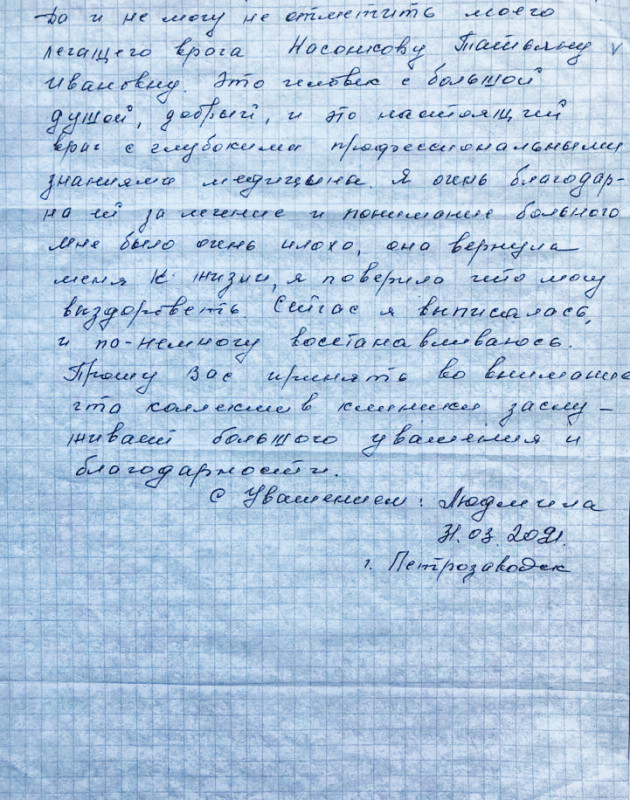 Да и не могу не отметить моего
лечащего врача Насонкову Татьяну
Ивановну. Это человек с большой
душой, добрый, и это настоящий
врач с глубокими профессиональными
знаниями медицины. Я очень благодар-
на ей за лечение и понимание больного
Мне было очень плохо, она вернула
меня к жизни, я поверила что могу
выздороветь. Сейчас я выписалась,
и по-немногу восстанавливаюсь.
Прошу Вас принять во внимание
что коллектив клиники заслу-
живает большого уважения и
благодарности.
С Уважением: Людмила
31.03.2021.
г. Петрозаводск